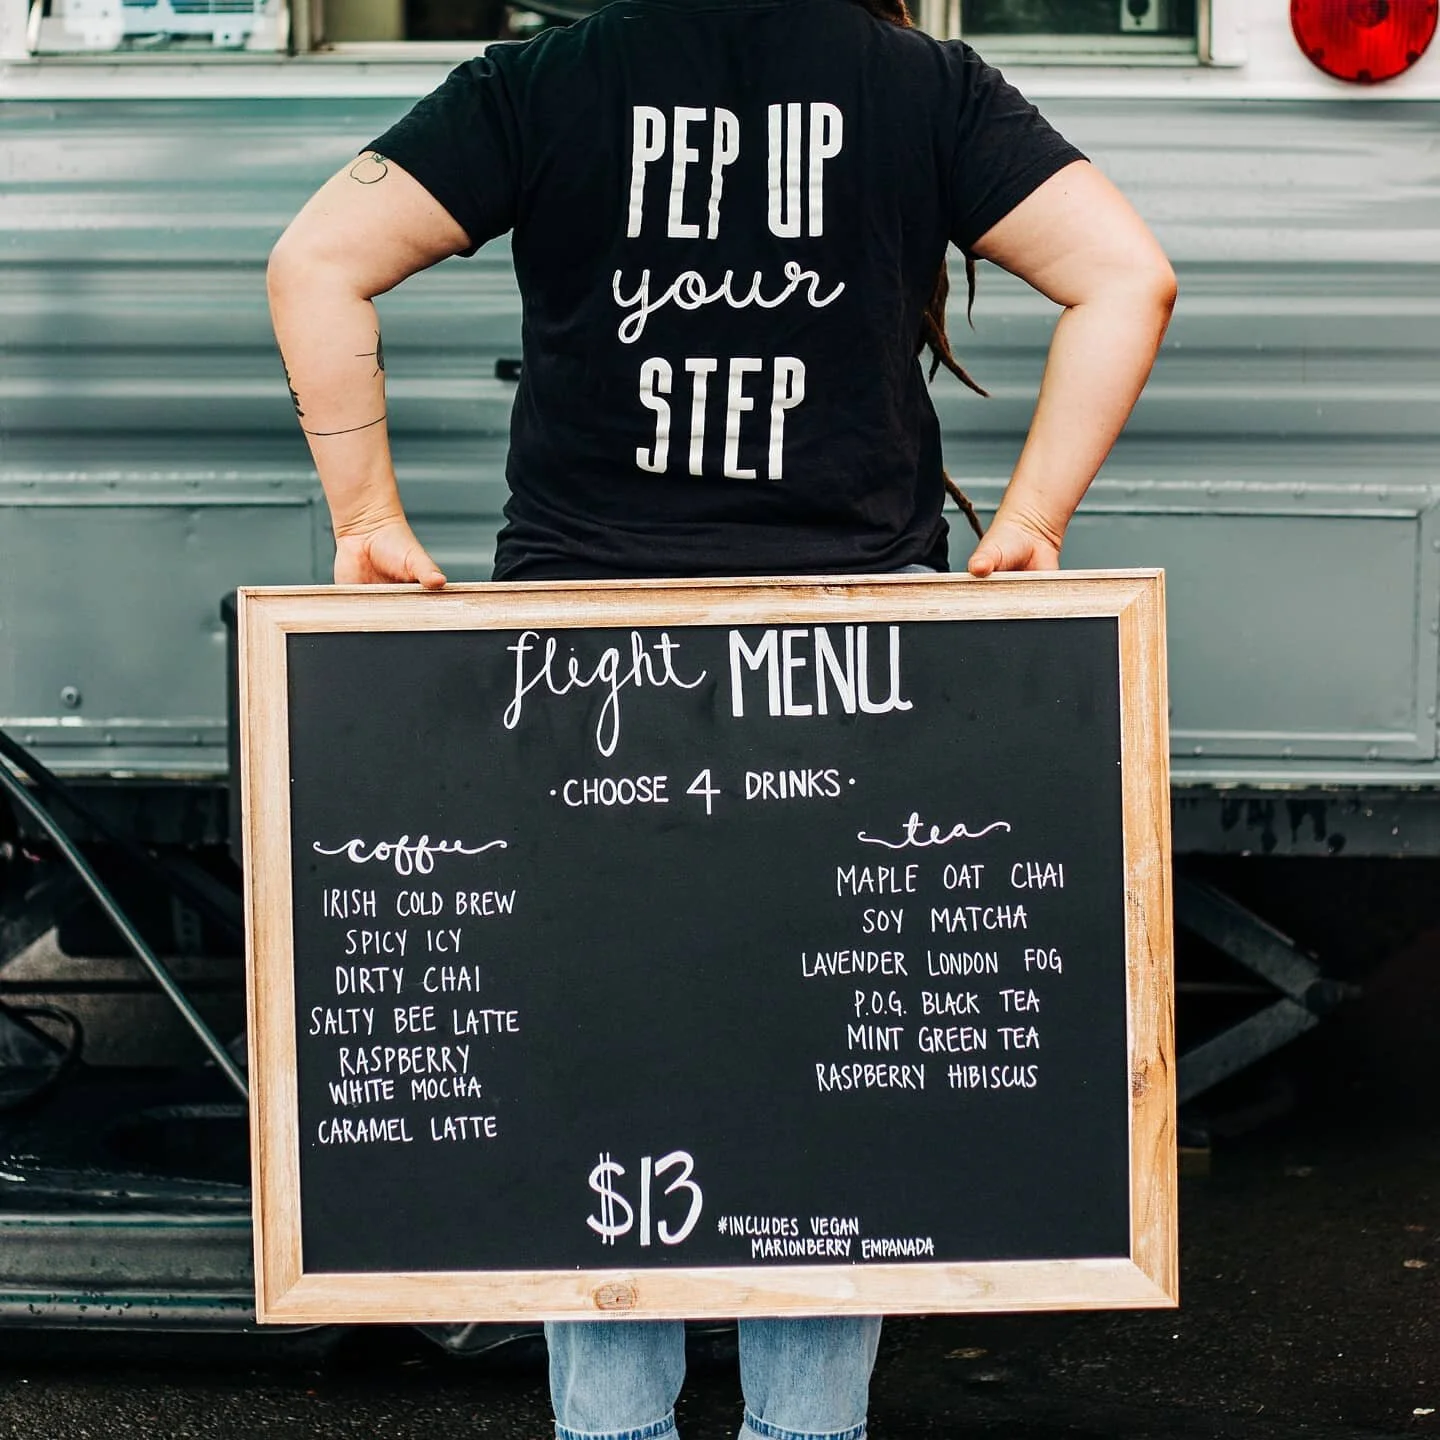 PEP UP
your
STEP
flight MENU
·CHOOSE 4 DRINKS·
coffee
IRISH COLD BREW
SPICY ICY
DIRTY CHAI
SALTY BEE LATTE
RASPBERRY
WHITE MOCHA
CARAMEL LATTE
tea
MAPLE OAT CHAI
SOY MATCHA
LAVENDER LONDON FOG
P.O.G. BLACK TEA
MINT GREEN TEA
RASPBERRY HIBISCUS
$13 *INCLUDES VEGAN
MARIONBERRY EMPANADA